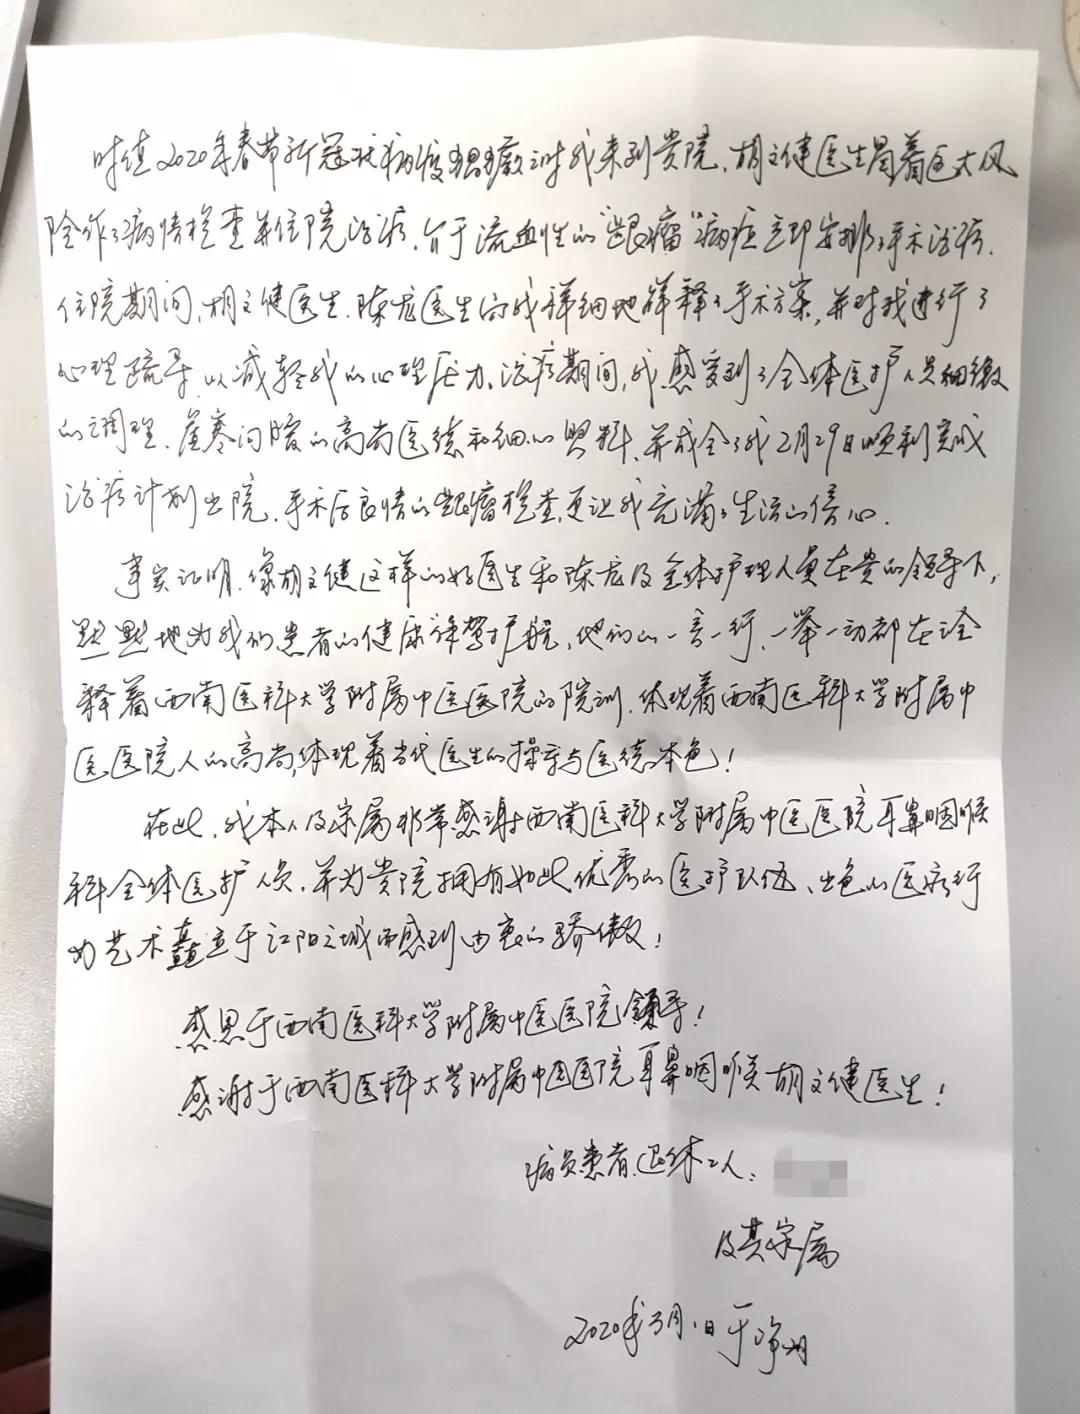 时值2020年春节新冠状病疫猖獗时我来到贵院，胡文健医生冒着巨大风
险作了病情检查并住院治疗，介于流血性的“龈瘤”病症立即安排了手术治疗。
住院期间，胡文健医生、陈龙医生向我详细地解释了手术方案，并对我进行了
心理疏导，以减轻我的心理压力，治疗期间，我感受到了全体医护人员细微
的调理、崔寒问暖的高尚医德和细心照料，并成全了我2月29日顺利完成
治疗计划出院，手术后良情的龈瘤检查，更让我充满了生活的信心．
事实证明，像胡文健这样的好医生和陈龙及全体护理人员在贵的领导下，
默默地为我们患者的健康保驾护航，他们的一言一行，一举一动都在诠
释着西南医科大学附属中医医院的院训，体现着西南医科大学附属中
医医院人的高尚，体现着当代医生的操守与医德本色！
在此，我本人及家属非常感谢西南医科大学附属中医医院耳鼻咽喉
科全体医护人员，并为贵院拥有如此优秀的医护队伍、出色的医疗行
为艺术矗立于江阳之城而感到由衷的骄傲！
感恩于西南医科大学附属中医医院领导！
感谢于西南医科大学附属中医医院耳鼻咽喉胡文健医生！
病员患者，退休工人：
及其家属
2020年3月1日于泸州